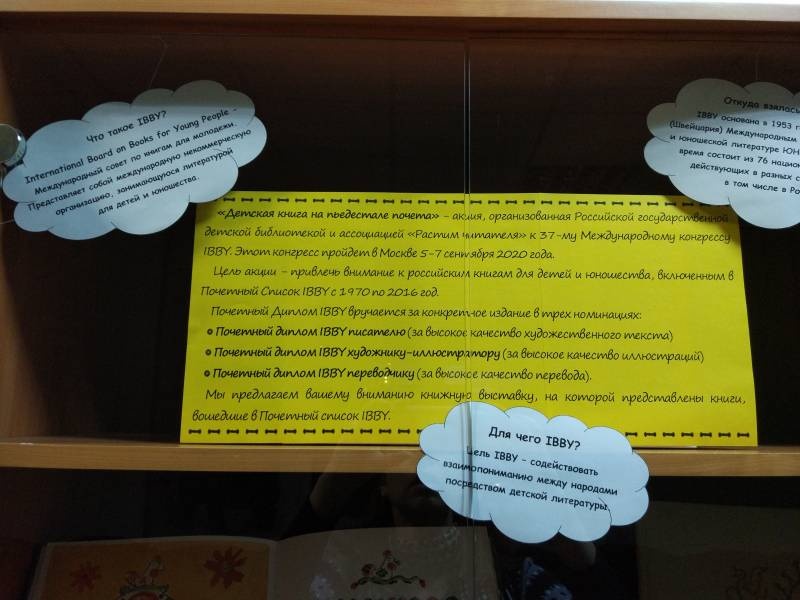 Что такое IBBY?
International Board on Books for Young People -
Международный совет по книгам для молодежи.
Представляет собой международную некоммерческую
организацию, занимающуюся литературой
для детей и юношества.
Откуда взялась
IBBY основана в 1953 г
(Швейцария) Международным
и юношеской литературе ЮН
время состоит из 76 национ
действующих в разных с
в том числе в Ро
«Детская книга на пьедестале почета» – акция, организованная Российской государственной
детской библиотекой и ассоциацией «Растим читателя» к 37-му Международному конгрессу
IBBY. Этот конгресс пройдет в Москве 5-7 сентября 2020 года.
Цель акции – привлечь внимание к российским книгам для детей и юношества, включенным в
Почетный Список IBBY с 1970 по 2016 год.
Почетный Диплом IBBY вручается за конкретное издание в трех номинациях:
Почетный диплом IBBY писателю (за высокое качество художественного текста)
Почетный диплом IBBY художнику-иллюстратору (за высокое качество иллюстраций)
Почетный диплом IBBY переводчику (за высокое качество перевода).
Мы предлагаем вашему вниманию книжную выставку, на которой представлены книги,
вошедшие в Почетный список IBBY.
Для чего IBBY?
Цель IBBY – содействовать
взаимопониманию между народами
посредством детской литературы